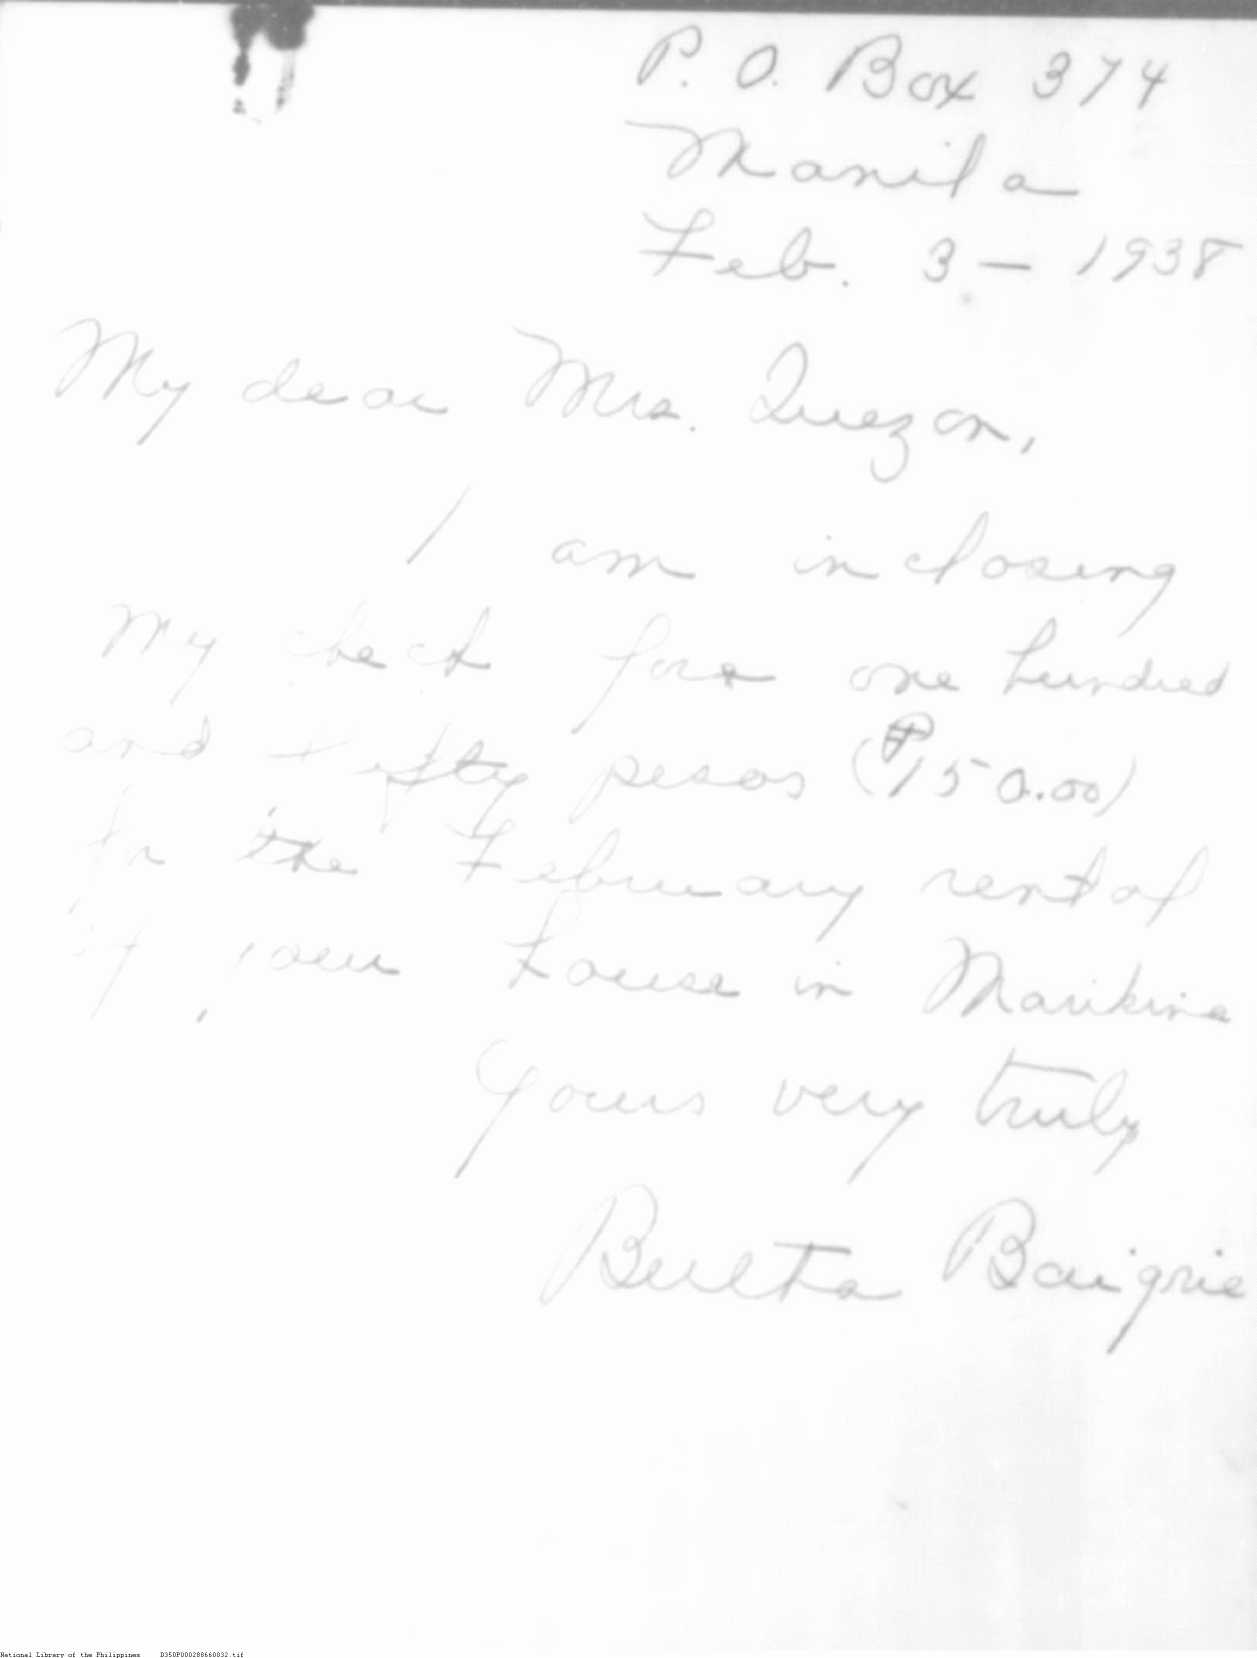 P. O. Box 374
Manila
Feb. 3 — 1938
My dear Mrs. Quezon,
I am inclosing
my check for one hundred
and fifty pesos (₱150.00)
for the February rent of
of your house in Marikina
Yours very truly
Beulta Baigrie
National Library of the Philippines D350P000288660832.tif